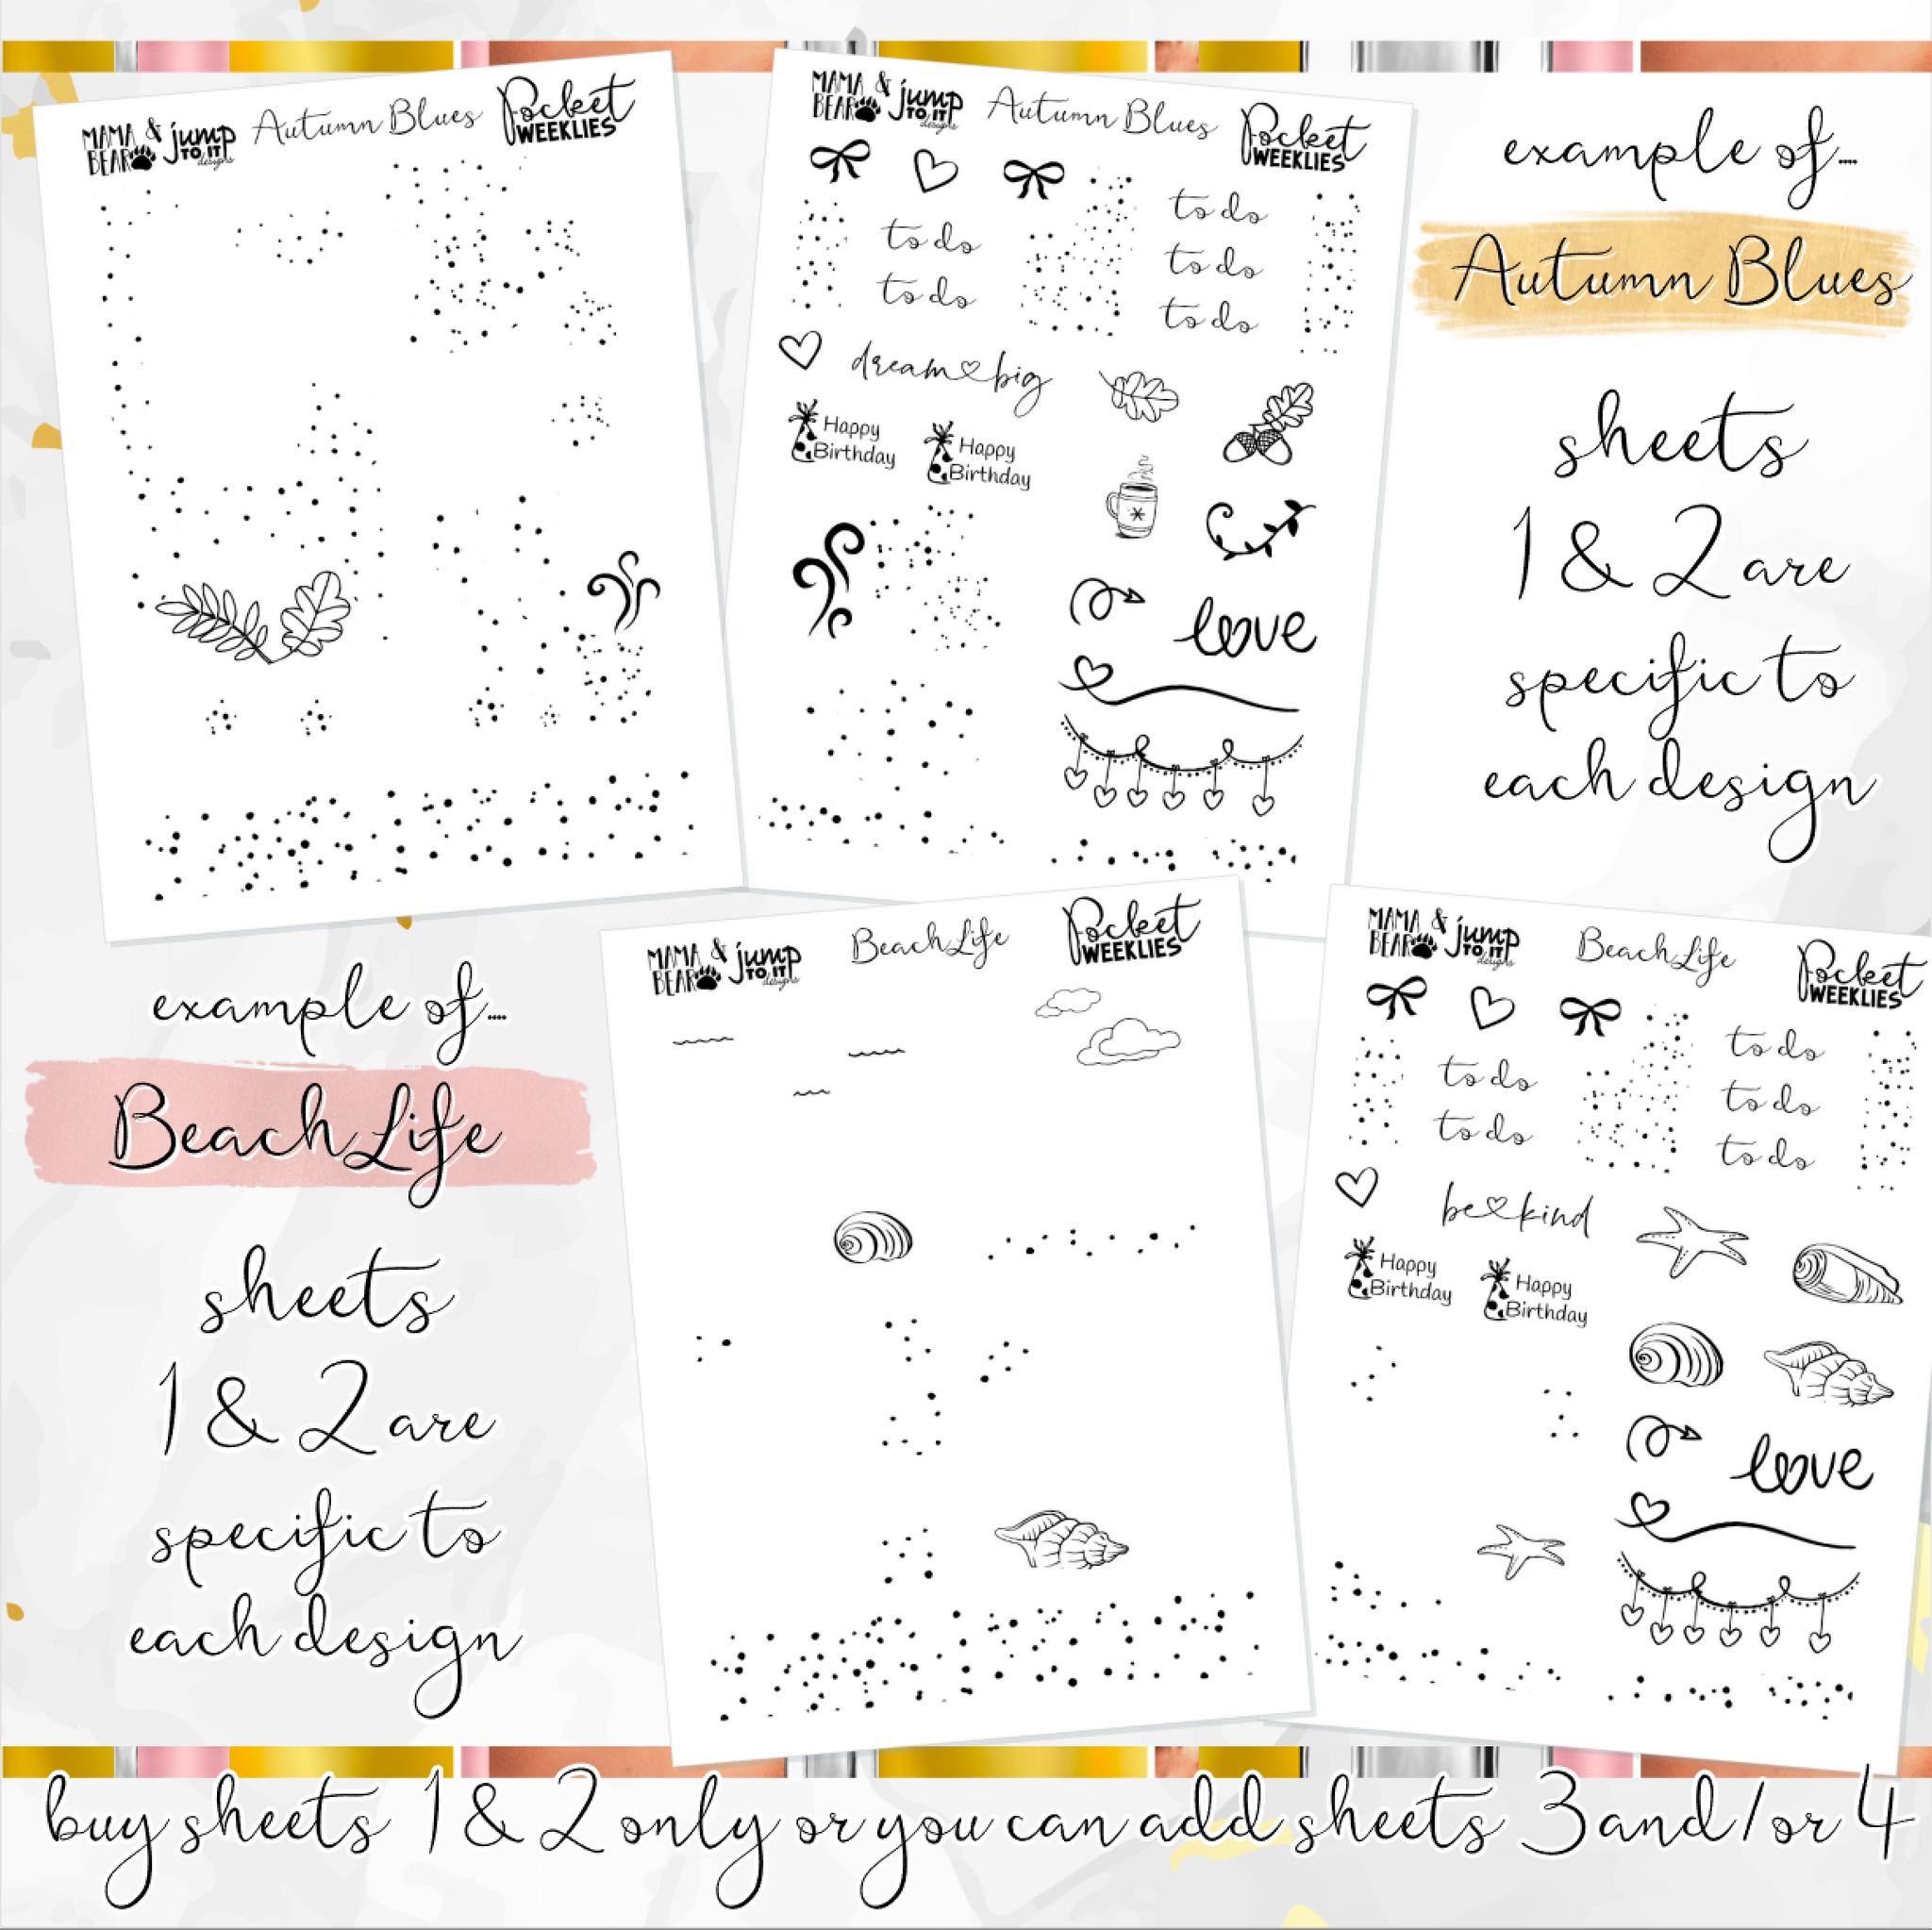 MAMA & jump
BEAR TO IT
designs
Autumn Blues
Pocket
WEEKLIES
MAMA & jump
BEAR TO IT
designs
Autumn Blues
Pocket
WEEKLIES
to do
to do
to do
to do
to do
dream big
Happy
Birthday
Happy
Birthday
love
example of....
Autumn Blues
sheets
1 & 2 are
specific to
each design
example of....
Beach Life
sheets
1 & 2 are
specific to
each design
MAMA & jump
BEAR TO IT
designs
Beach Life
Pocket
WEEKLIES
MAMA & jump
BEAR TO IT
designs
Beach Life
Pocket
WEEKLIES
to do
to do
to do
to do
to do
be kind
Happy
Birthday
Happy
Birthday
love
buy sheets 1 & 2 only or you can add sheets 3 and/or 4